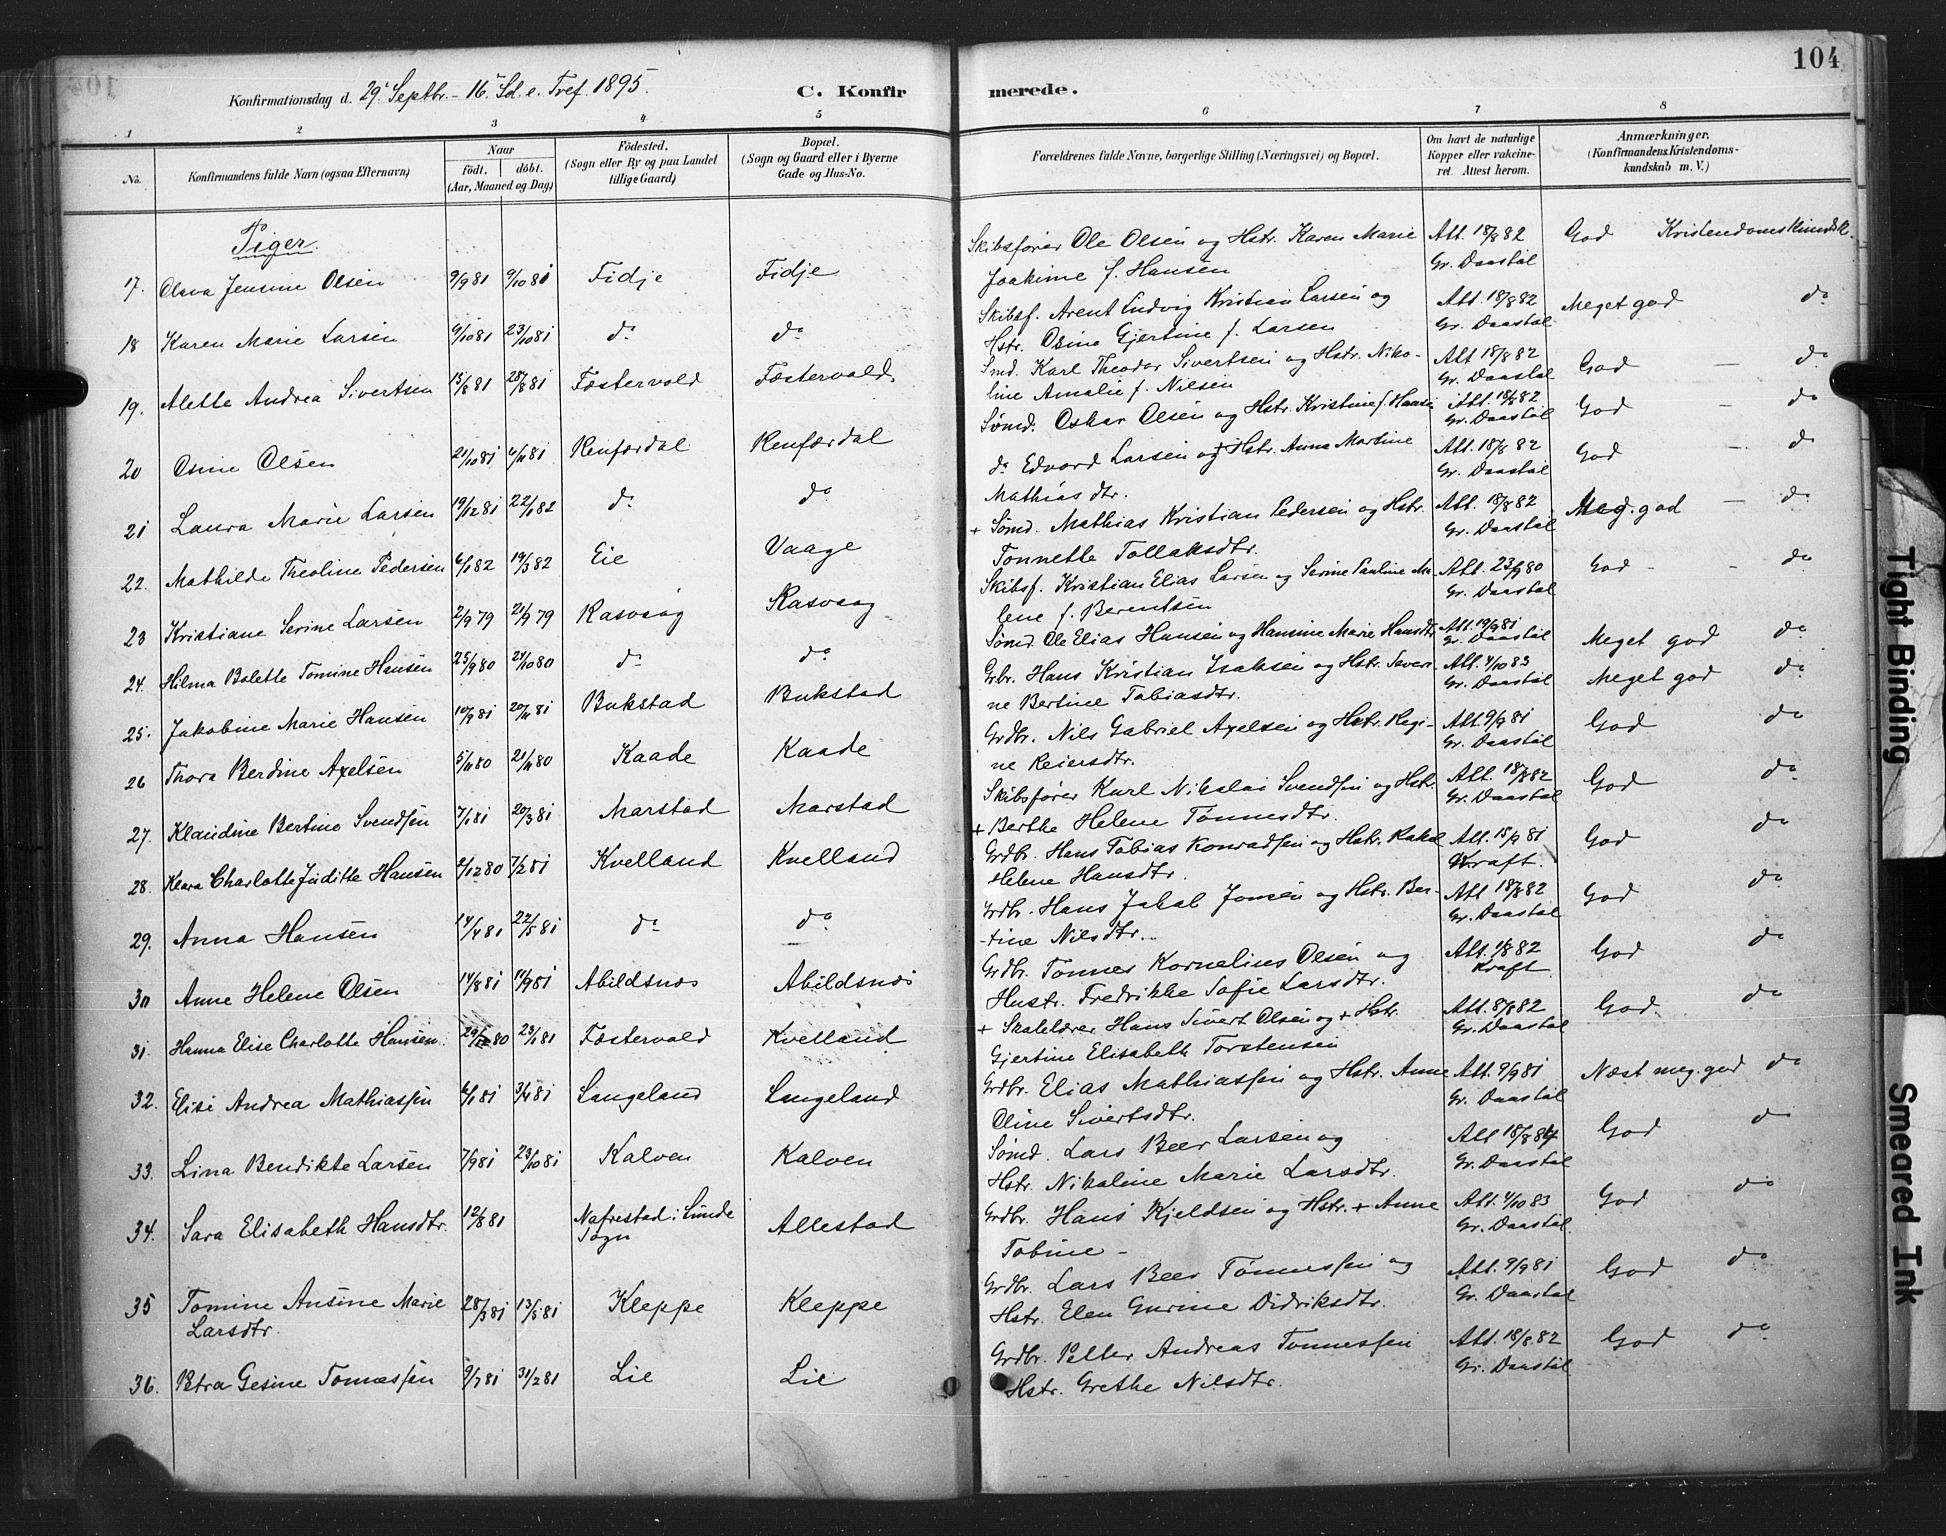 104
Konfirmationsdag d. 29' Septbr. - 16' Sd. e. Tref. 1895.
C. Konfirmerede.
1 2 3 4 5 6 7 8
No.
Konfirmandens fulde Navn (ogsaa Efternavn)
Naar
födt. döbt.
(Aar, Maaned og Dag)
Födested.
(Sogn eller By og paa Landet
tillige Gaard)
Bopæl.
(Sogn og Gaard eller i Byerne
Gade og Hus-No.
Forældrenes fulde Navne, borgerlige Stilling (Næringsvei) og Bopæl.
Om havt de naturlige
Kopper eller vakcine-
ret. Attest herom.
Anmærkninger.
(Konfirmandens Kristendoms-
kundskab m. V.)
Piger.
17. Olava Jensine Olsen 9/9 81 9/10 81 Fidje Fidje
Skibsfører Ole Olsen og Hstr. Karen Marie Att. 18/8 82 God Kristendomskundsk.
Joakime f. Hansen Gr. Daastøl
18 Karen Marie Larsen 6/10 81 23/10 81 do do
Skibsf. Arent Ludvig Kristian Larsen og Att. 18/8 82 Meget god do
Hstr. Osine Gjertine f. Larsen Gr. Daastøl
19. Alette Andrea Sivertsen 15/8 81 28/8 81 Fæstervold Fæstervold.
Smd. Karl Theodor Sivertsen og Hstr. Niko- Att 18/8 82 God — do
line Amalie f. Nilsen Gr. Daastøl
20 Osine Olsen 21/10 81 6/11 81 Renfærdal Renfærdal
Sømd. Oskar Olsen og Hstr. Kristine f. Hansen Att. 18/8 82 God — do
Gr. Daastøl
21 Laura Marie Larsen 19/12 81 22/1 82 do do
do Edvard Larsen og + Hstr. Anna Martine Att. 18/8 82 God - do
Mathias dtr. Gr. Daastøl
22. Mathilde Theoline Pedersen 6/1 82 19/3 82 Eie Vaage
+ Sømd. Mathias Kristian Pedersen og Hstr. Att. 18/8 82 Meg. god — do
Tonnette Tollaksdtr. Gr. Daastøl
23 Kristiane Serine Larsen 2/9 79 21/9 79 Rasvaag Rasvaag
Skibsf. Kristian Elias Larsen og Serine Pauline Ma- Att. 23/9 80 God - - do
lene f. Berentsen Gr. Daastøl
24. Hilma Bolette Tomine Hansen 25/9 80 24/10 80 do do
Sømd Ole Elias Hansen og Hansine Marie Hansdtr Att. 19/9 81 Meget god do
Gr. Daastøl
25. Jakobine Marie Hansen 10/9 81 20/11 81 Bukstad Bukstad
Gbr. Hans Kristian Isaksen og Hstr. Severi- Att. 4/10 83 Meget god do
ne Bertine Tobiasdtr. Gr. Daastøl
26 Thora Berdine Axelsen 5/11 80 21/11 80 Kaade Kaade
Grdbr. Nils Gabriel Axelsen og Hstr. Regi- Att. 9/9 81 God do
ne Reiersdtr. Gr. Daastøl
27. Klaudine Bertine Svendsen 7/1 81 20/3 81 Marstad Marstad
Skibsfører Karl Nikolai Svendsen og Hstr. Att. 18/8 82 God do
+ Berthe Helene Tønnesdtr. Gr. Daastøl
28. Klara Charlotte Juditte Hansen 2/12 80 7/2 81 Kvelland Kvelland
Grdbr. Hans Tobias Konradsen og Hstr. Rakel Att. 15/9 81 God do
Helene Hansdtr. Kraft.
29. Anna Hansen 14/4 81 22/5 81 do do
Grdbr. Hans Jakob Jonsen og Hstr. Ber- Att 18/8 82 God do
-tine Nilsdtr. Gr. Daastøl
30 Anne Helene Olsen 14/8 81 11/9 81 Abildsnæs Abildsnæs
Grdbr. Tønnes Kornelius Olsen og Att. 1/8 82 God do
Hustr. Fredrikke Sofie Larsdtr. Kraft
31. Hanna Elise Charlotte Hansen. 29/12 80 23/1 81 Fæstervold Kvelland
+ Skolelærer Hans Sivert Olsen og + Hstr. Att. 8/8 82 God. do
Gjertine Elisabeth Torstensen Gr. Daastøl
32. Elise Andrea Mathiassen 6/1 81 3/4 81 Langeland Langeland
Grdbr. Elias Mathiassen og Hstr. Anne Att. 9/9 81 Næst meg. god do
Oline Sivertsdtr. Gr. Daastøl
33. Lina Bendikte Larsen 7/9 81 23/10 81 Kalven Kalven
Sømd. Lars Beer Larsen og Att 18/8 84 God do
Hstr. Nikoline Marie Larsdtr. Gr. Daastøl
34. Sara Elisabeth Hansdtr. 12/8 81 Nafrestad i Lunde Allestad
Sogn
Grdbr. Hans Kjeldsen og Hstr. + Anne Att. 4/10 83 God do
Tobine - Gr. Daastøl
35 Tomine Ansine Marie 28/3 81 13/5 81 Kleppe Kleppe
Larsdtr.
Grdbr. Lars Beer Tønnessen og Att. 9/9 81 God do
Hstr. Elen Gurine Didriksdtr. Gr. Daastøl
36. Petra Gesine Tønnessen 9/7 81 31/2 81 Lie Lie
Grdbr. Petter Andreas Tønnessen Att. 18/8 82 God do
Hstr. Grethe Nilsdtr. Gr. Daastøl
Tight Binding
Smeared Ink